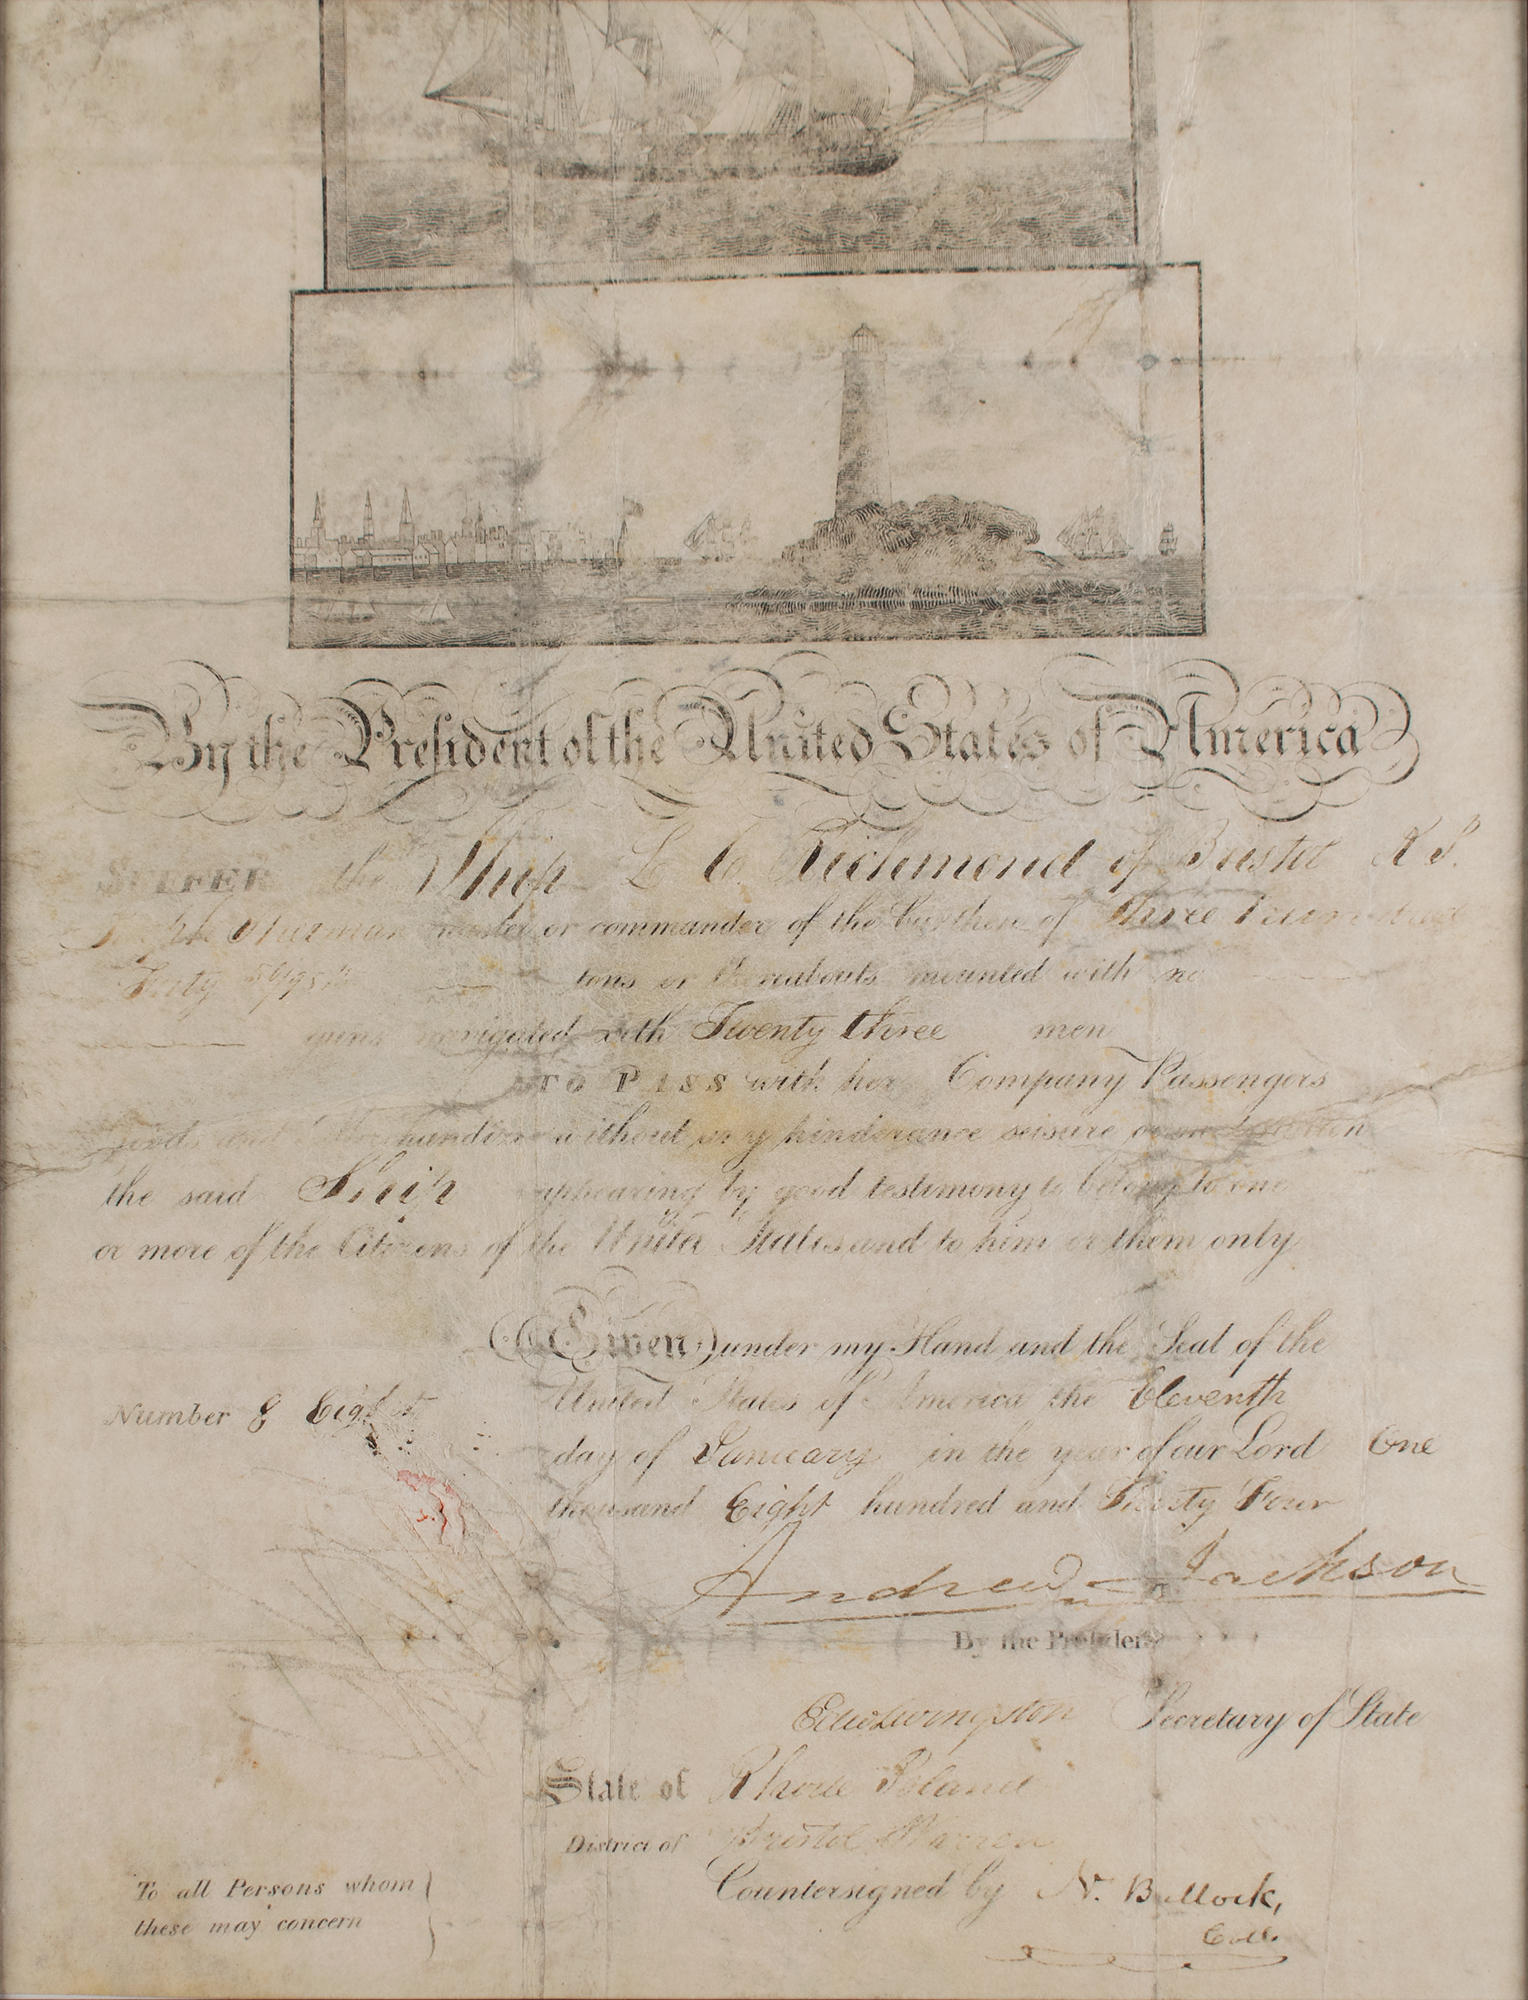 By the President of the United States of America
SUFFER the Ship L C Richmond of Bristol R I.
master or commander of the burthen of Three Hundred
tons or thereabouts mounted with no
guns navigated with Twenty three men
TO PASS with her Company Passengers
Goods and Merchandize without any hinderance seisure or molestation
the said Ship appearing by good testimony to belong to one
or more of the Citizens of the United States and to him or them only
Given under my Hand and the Seal of the
United States of America the Eleventh
Number 8 Eight
day of January in the year of our Lord One
thousand Eight hundred and Thirty Four
Andrew Jackson
By the President
Edw Livingston Secretary of State
State of Rhode Island
District of Bristol Warren
Countersigned by N. Bullock,
Coll.
To all Persons whom
these may concern